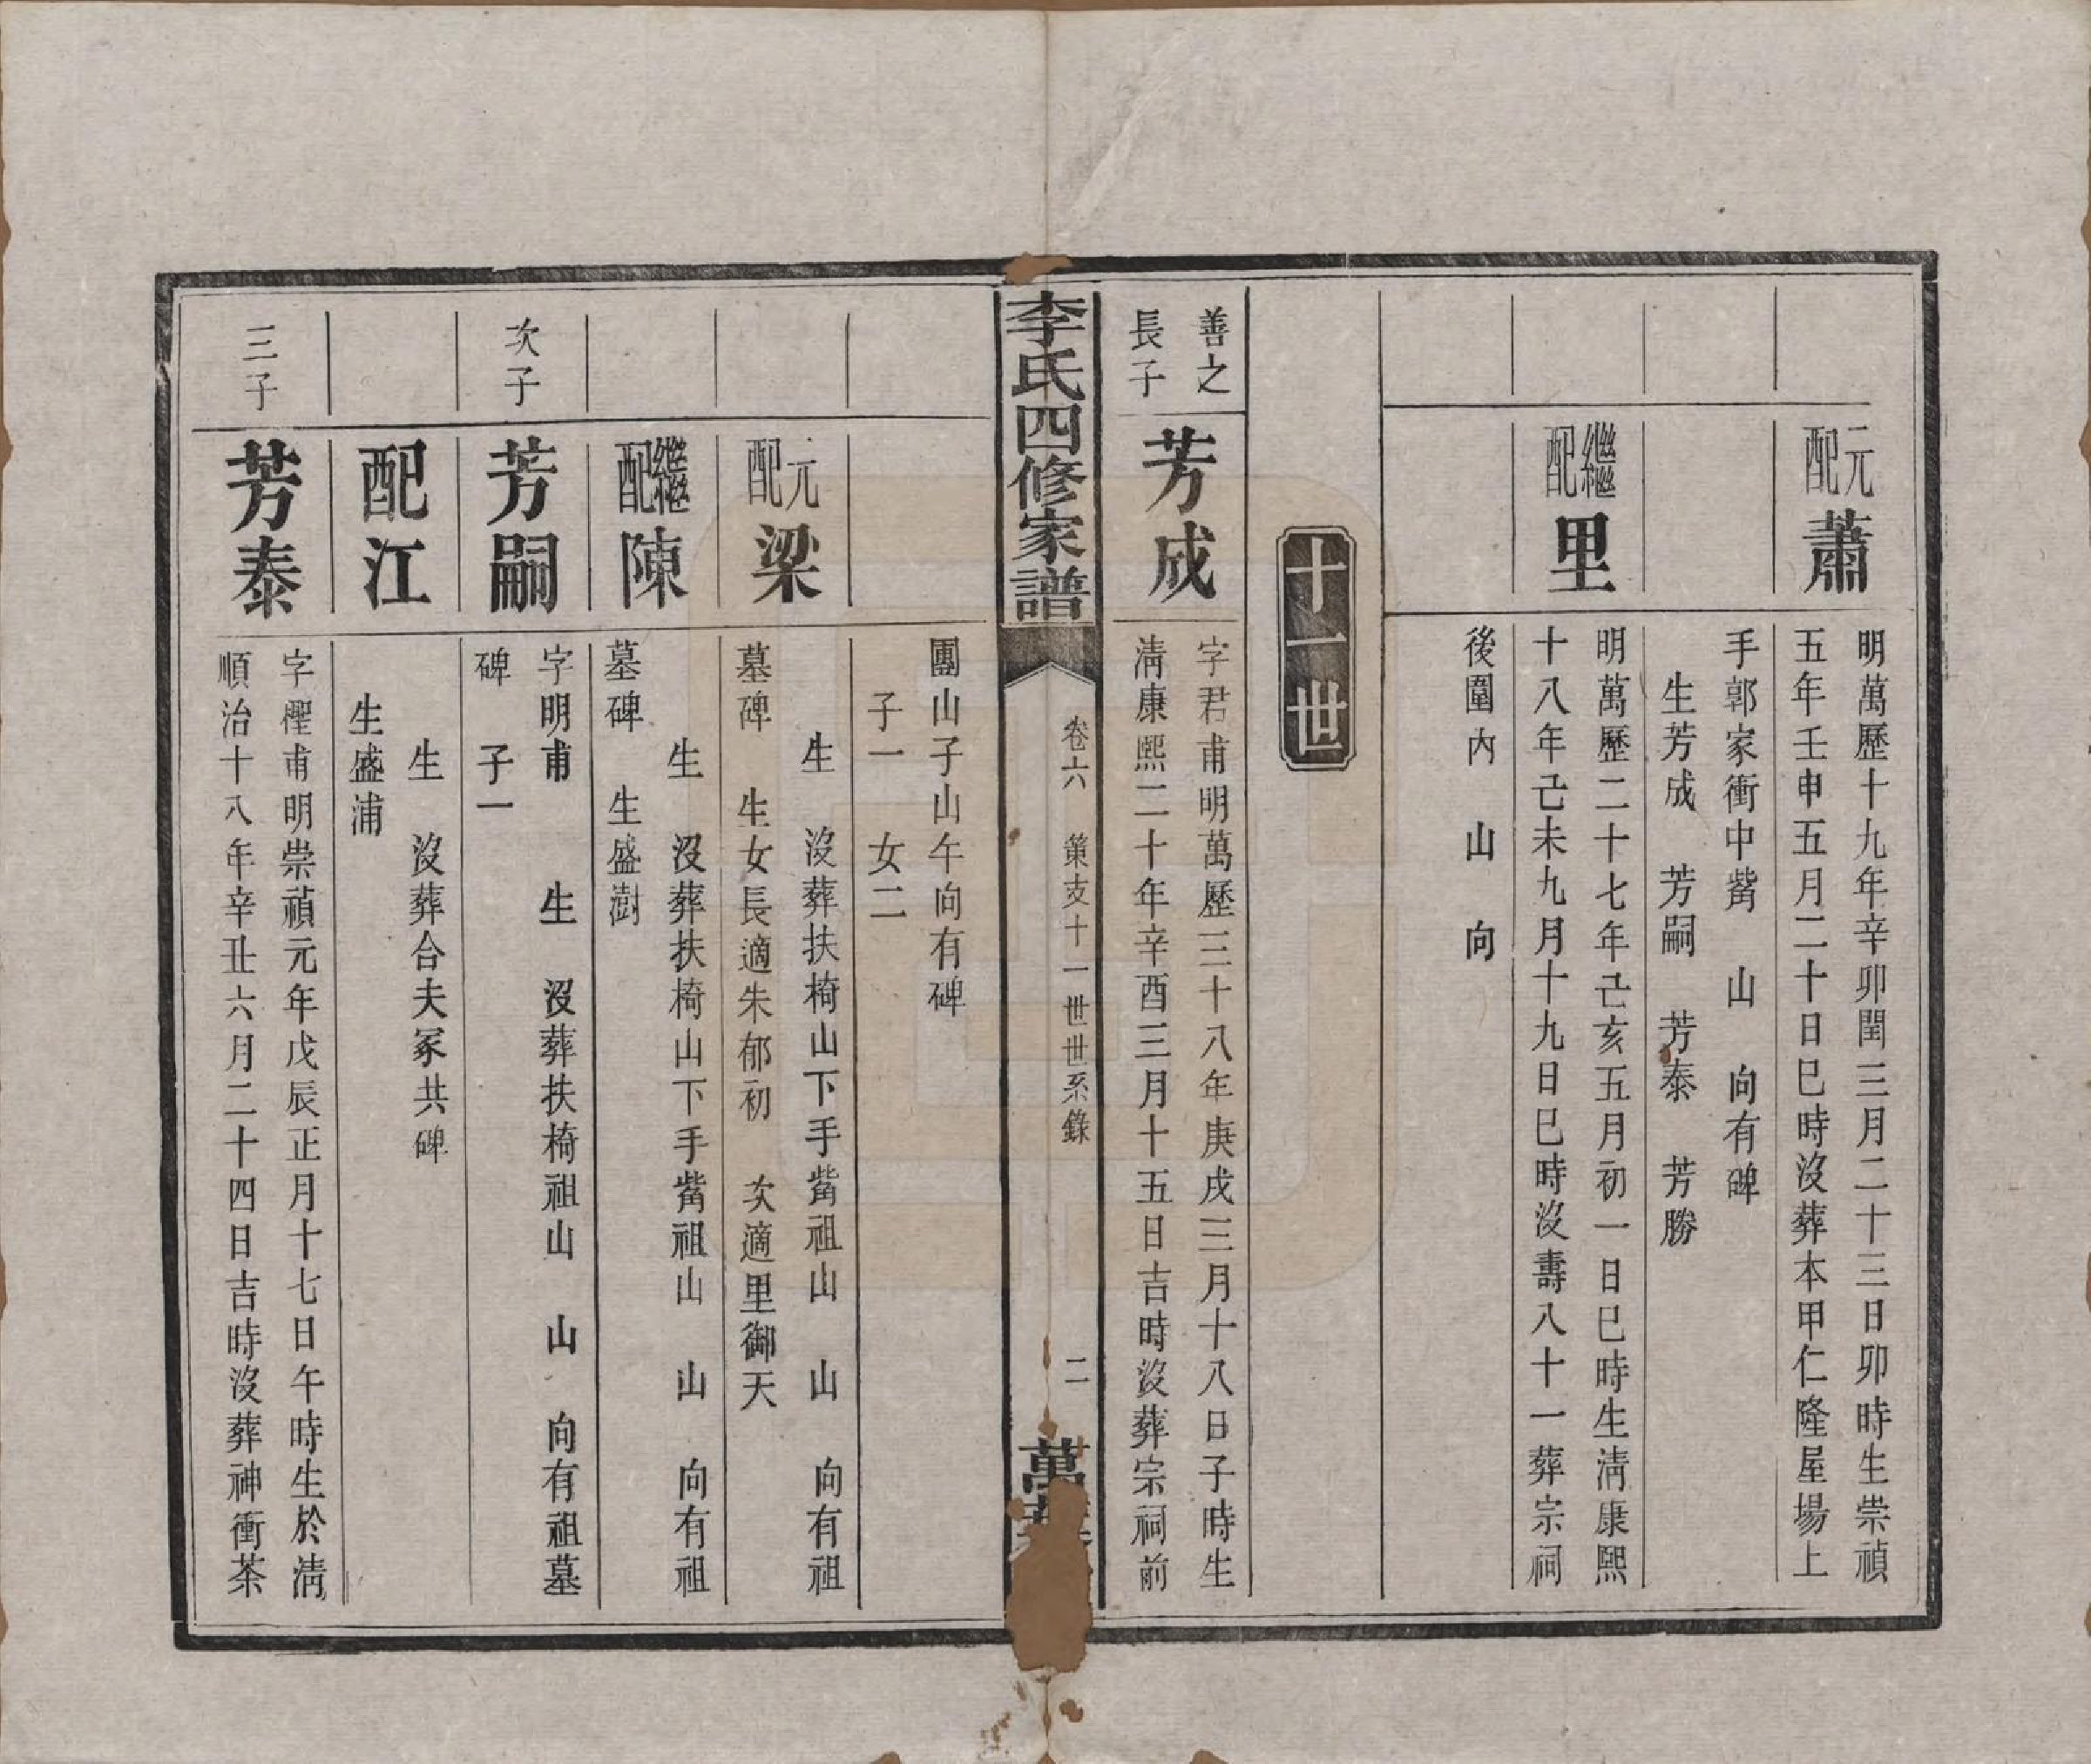 元配蕭
明萬歷十九年辛卯閏三月二十三日卯時生崇禎
五年壬申五月二十日巳時沒葬本甲仁隆屋場上
手郭家衝中觜 山 向有碑
生芳成 芳嗣 芳泰 芳勝
繼配里
明萬歷二十七年己亥五月初一日巳時生清康熙
十八年己未九月十九日巳時沒壽八十一葬宗祠
後圍內 山 向
十一世
善之
長子
芳成
字君甫明萬歷三十八年庚戌三月十八日子時生
清康熙二十年辛酉三月十五日吉時沒葬宗祠前
李氏四修家譜
卷六 策支十一世世系錄
二
萬
團山子山午向有碑
子一 女二
元配梁
生 沒葬扶椅山下手觜祖山 山 向有祖
墓碑 生女長適朱郁初 次適里御天
繼配陳
生 沒葬扶椅山下手觜祖山 山 向有祖
墓碑 生盛澍
次子
芳嗣
字明甫 生 沒葬扶椅祖山 山 向有祖墓
碑 子一
配江
生 沒葬合夫冢共碑
生盛浦
三子
芳泰
字檉甫明崇禎元年戊辰正月十七日午時生於清
順治十八年辛丑六月二十四日吉時沒葬神衝茶